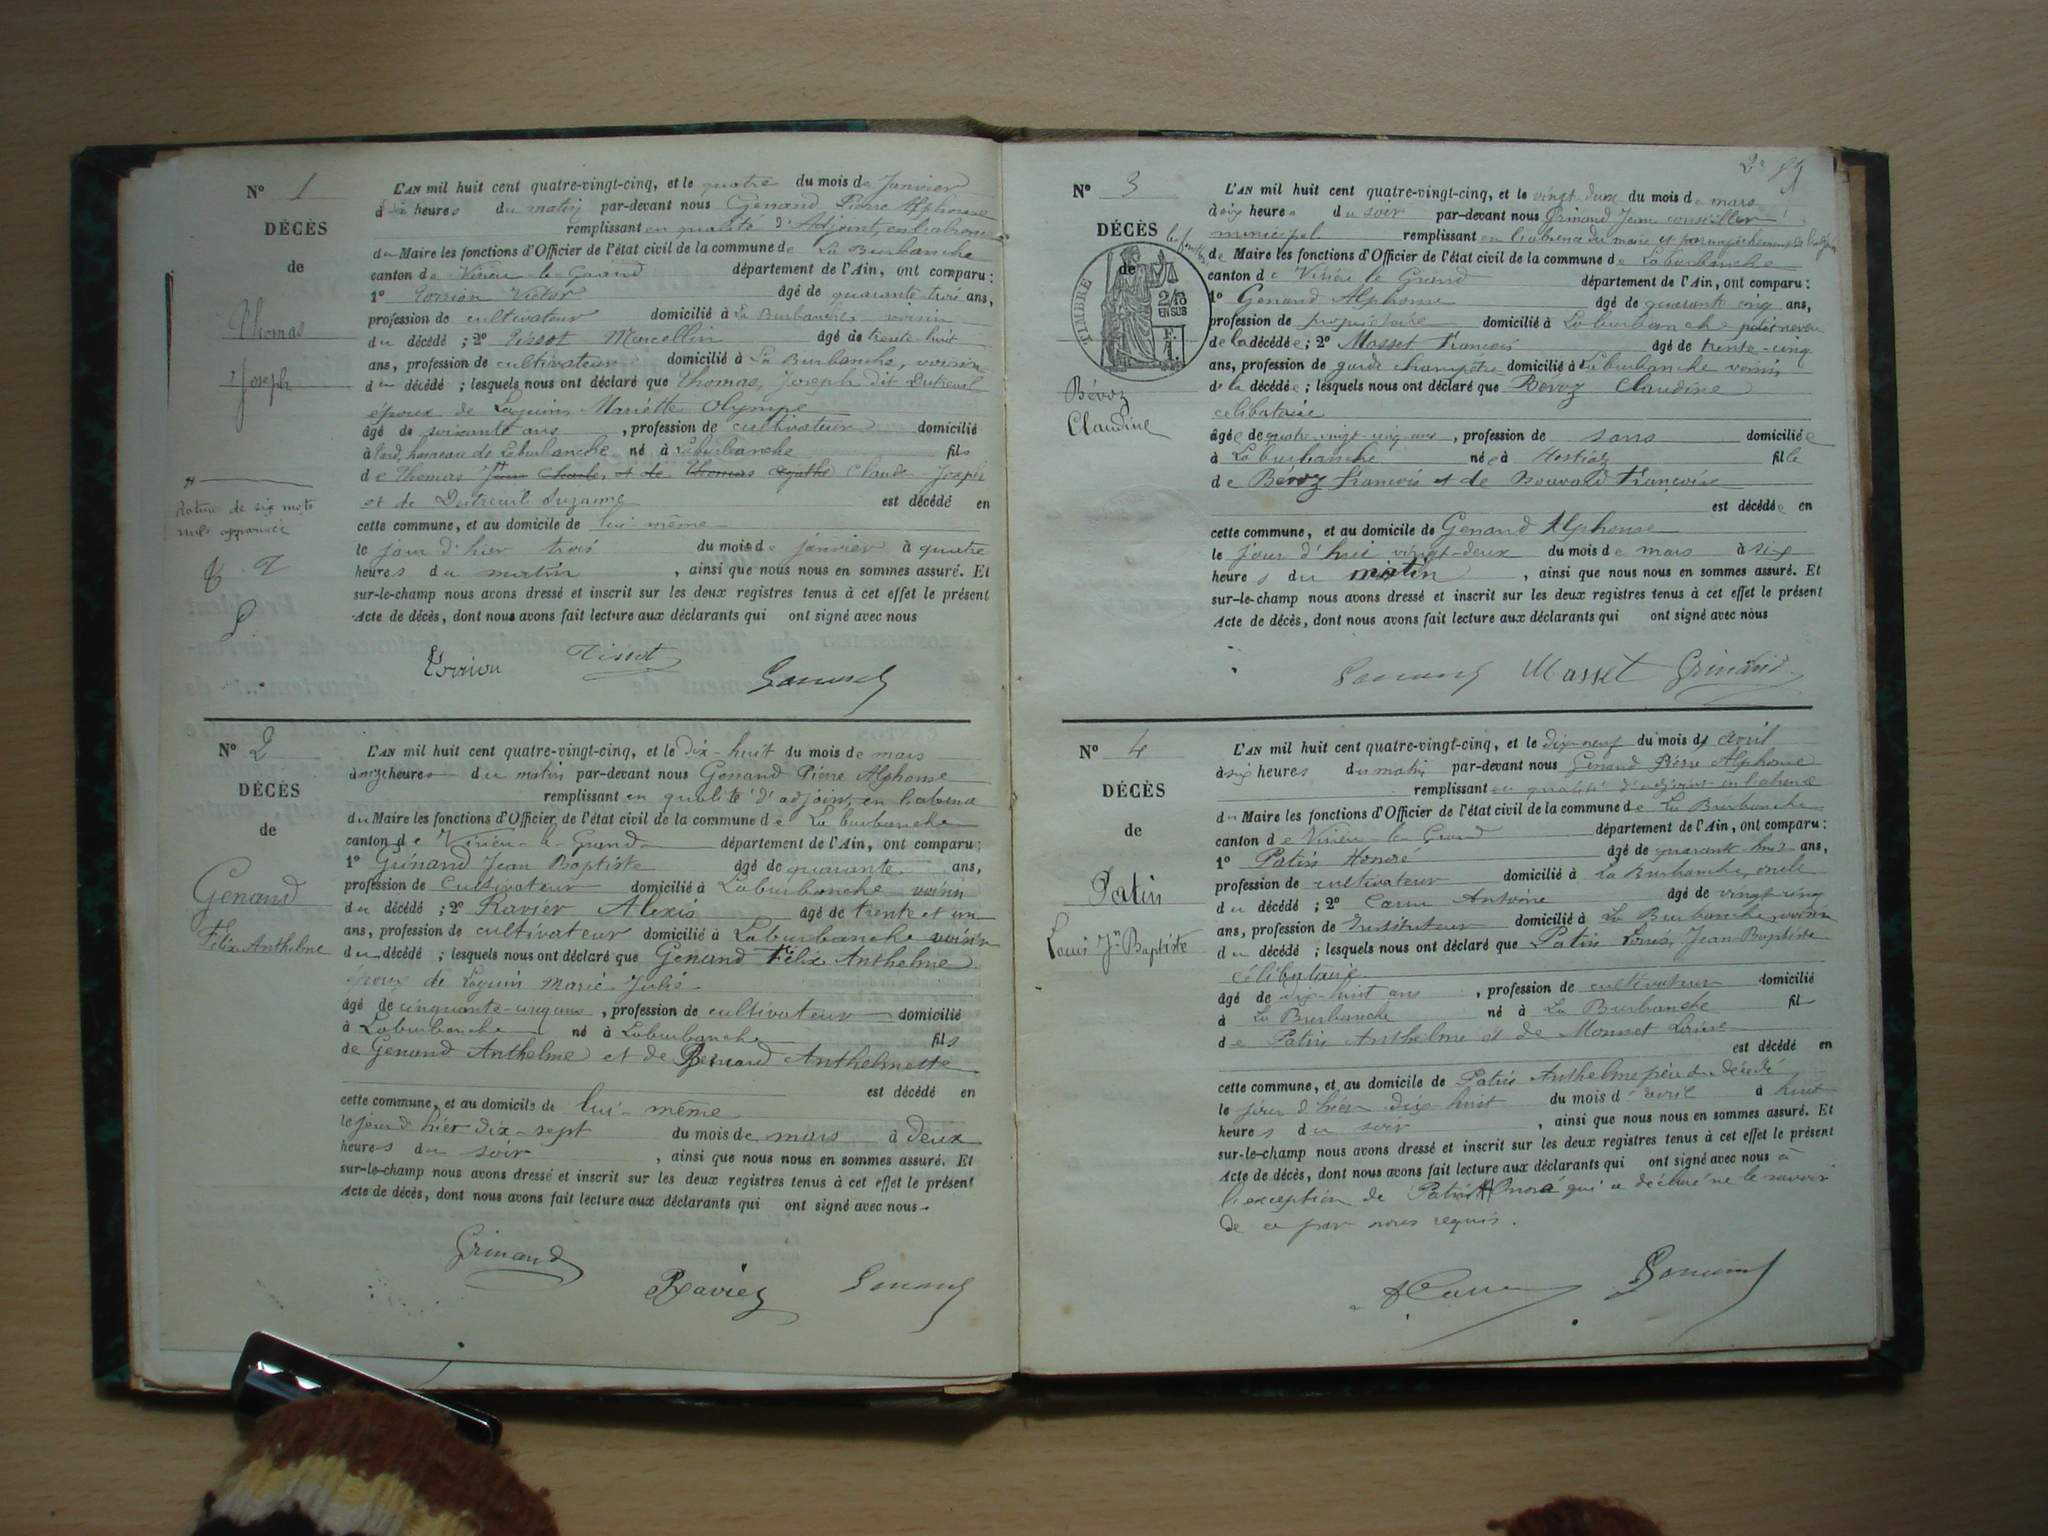 N° 1
DÉCÈS
de
Thomas
Joseph
L'AN mil huit cent quatre-vingt-cinq, et le quatre du mois de Janvier
à heures du matin par-devant nous Genand Pierre Alphonse
remplissant en qualité d'Adjoint, en l'absence
du Maire les fonctions d'Officier de l'état civil de la commune de La Burbanche
canton de Virieu-le-Grand département de l'Ain, ont comparu :
1° Torrion Victor âgé de quarante-trois ans,
profession de cultivateur domicilié à La Burbanche voisin
du décédé ; 2° Tissot Marcellin âgé de trente-huit
ans, profession de cultivateur domicilié à La Burbanche, voisin
du décédé ; lesquels nous ont déclaré que Thomas, Joseph dit Dutreuil
époux de Laguin Mariette Olympe
âgé de soixante ans , profession de cultivateur domicilié
à hameau de Laburbanche né à Laburbanche fils
de Thomas Jean Charles et de Thomas Agathe Claude-Joseph
et de Dutreuil Suzanne est décédé en
cette commune, et au domicile de lui même
le jour d'hier trois du mois de janvier à quatre
heures du matin , ainsi que nous nous en sommes assuré. Et
sur-le-champ nous avons dressé et inscrit sur les deux registres tenus à cet effet le présent
Acte de décès, dont nous avons fait lecture aux déclarants qui ont signé avec nous
Rature de six mots
nuls approuvée
Torrion Tissot Genand
N° 2
DÉCÈS
de
Genand
Félix Anthelme
L'AN mil huit cent quatre-vingt-cinq, et le dix-huit du mois de mars
à onze heures du matin par-devant nous Genand Pierre Alphonse
remplissant en qualité d'adjoint, en l'absence
du Maire les fonctions d'Officier de l'état civil de la commune de La burbanche
canton de Virieu-le-Grand département de l'Ain, ont comparu :
1° Grinand Jean Baptiste âgé de quarante ans,
profession de cultivateur domicilié à Laburbanche voisin
du décédé ; 2° Ravier Alexis âgé de trente et un
ans, profession de cultivateur domicilié à Laburbanche voisin
du décédé ; lesquels nous ont déclaré que Genand Félix Anthelme
époux de Laguin Marie Julie
âgé de cinquante-cinq ans , profession de cultivateur domicilié
à Laburbanche né à Laburbanche fils
de Genand Anthelme et de Anthelmette
est décédé en
cette commune, et au domicile de lui-même
le jour d'hier dix-sept du mois de mars à deux
heures du soir , ainsi que nous nous en sommes assuré. Et
sur-le-champ nous avons dressé et inscrit sur les deux registres tenus à cet effet le présent
Acte de décès, dont nous avons fait lecture aux déclarants qui ont signé avec nous
Grinand Ravier Genand
N° 3
DÉCÈS
de
TIMBRE
2/10
EN SUS
Bévoz
Claudine
L'AN mil huit cent quatre-vingt-cinq, et le vingt-deux du mois de mars
à six heures du soir par-devant nous Grinand Jean conseiller
municipal remplissant en l'absence du maire et par empêchement de l'adjoint
de Maire les fonctions d'Officier de l'état civil de la commune de Laburbanche
canton de Virieu le Grand département de l'Ain, ont comparu :
1° Genand Alphonse âgé de quarante cinq ans,
profession de propriétaire domicilié à Laburbanche petit neveu
de la décédée ; 2° Masset François âgé de trente-cinq
ans, profession de garde champêtre domicilié à Laburbanche voisin
de la décédée ; lesquels nous ont déclaré que Bévoz Claudine
célibataire
âgée de quatre-vingt-cinq ans , profession de sans domiciliée
à Laburbanche née à Hostiaz fille
de Bévoz François et de Françoise
est décédée en
cette commune, et au domicile de Genand Alphonse
le jour d'hui vingt-deux du mois de mars à six
heures du matin , ainsi que nous nous en sommes assuré. Et
sur-le-champ nous avons dressé et inscrit sur les deux registres tenus à cet effet le présent
Acte de décès, dont nous avons fait lecture aux déclarants qui ont signé avec nous
Genand Masset Grinand
N° 4
DÉCÈS
de
Patin
Louis Jn Baptiste
L'AN mil huit cent quatre-vingt-cinq, et le dix-neuf du mois d'avril
à six heures du matin par-devant nous Genand Pierre Alphonse
remplissant en qualité d'adjoint en l'absence
du Maire les fonctions d'Officier de l'état civil de la commune de La Burbanche
canton de Virieu-le-Grand département de l'Ain, ont comparu :
1° Patin Honoré âgé de quarante-huit ans,
profession de cultivateur domicilié à La Burbanche, oncle
du décédé ; 2° Antoine âgé de vingt-cinq
ans, profession de Instituteur domicilié à La Burbanche, voisin
du décédé ; lesquels nous ont déclaré que Patin Louis, Jean-Baptiste
célibataire
âgé de dix-huit ans , profession de cultivateur domicilié
à La Burbanche né à La Burbanche fils
de Patin Anthelme et de Monnet Louise
est décédé en
cette commune, et au domicile de Patin Anthelme père du décédé
le jour d'hier dix-huit du mois d'avril à huit
heures du soir , ainsi que nous nous en sommes assuré. Et
sur-le-champ nous avons dressé et inscrit sur les deux registres tenus à cet effet le présent
Acte de décès, dont nous avons fait lecture aux déclarants qui ont signé avec nous à
l'exception de Patin Honoré qui a déclaré ne le savoir
de ce par nous requis.
Genand